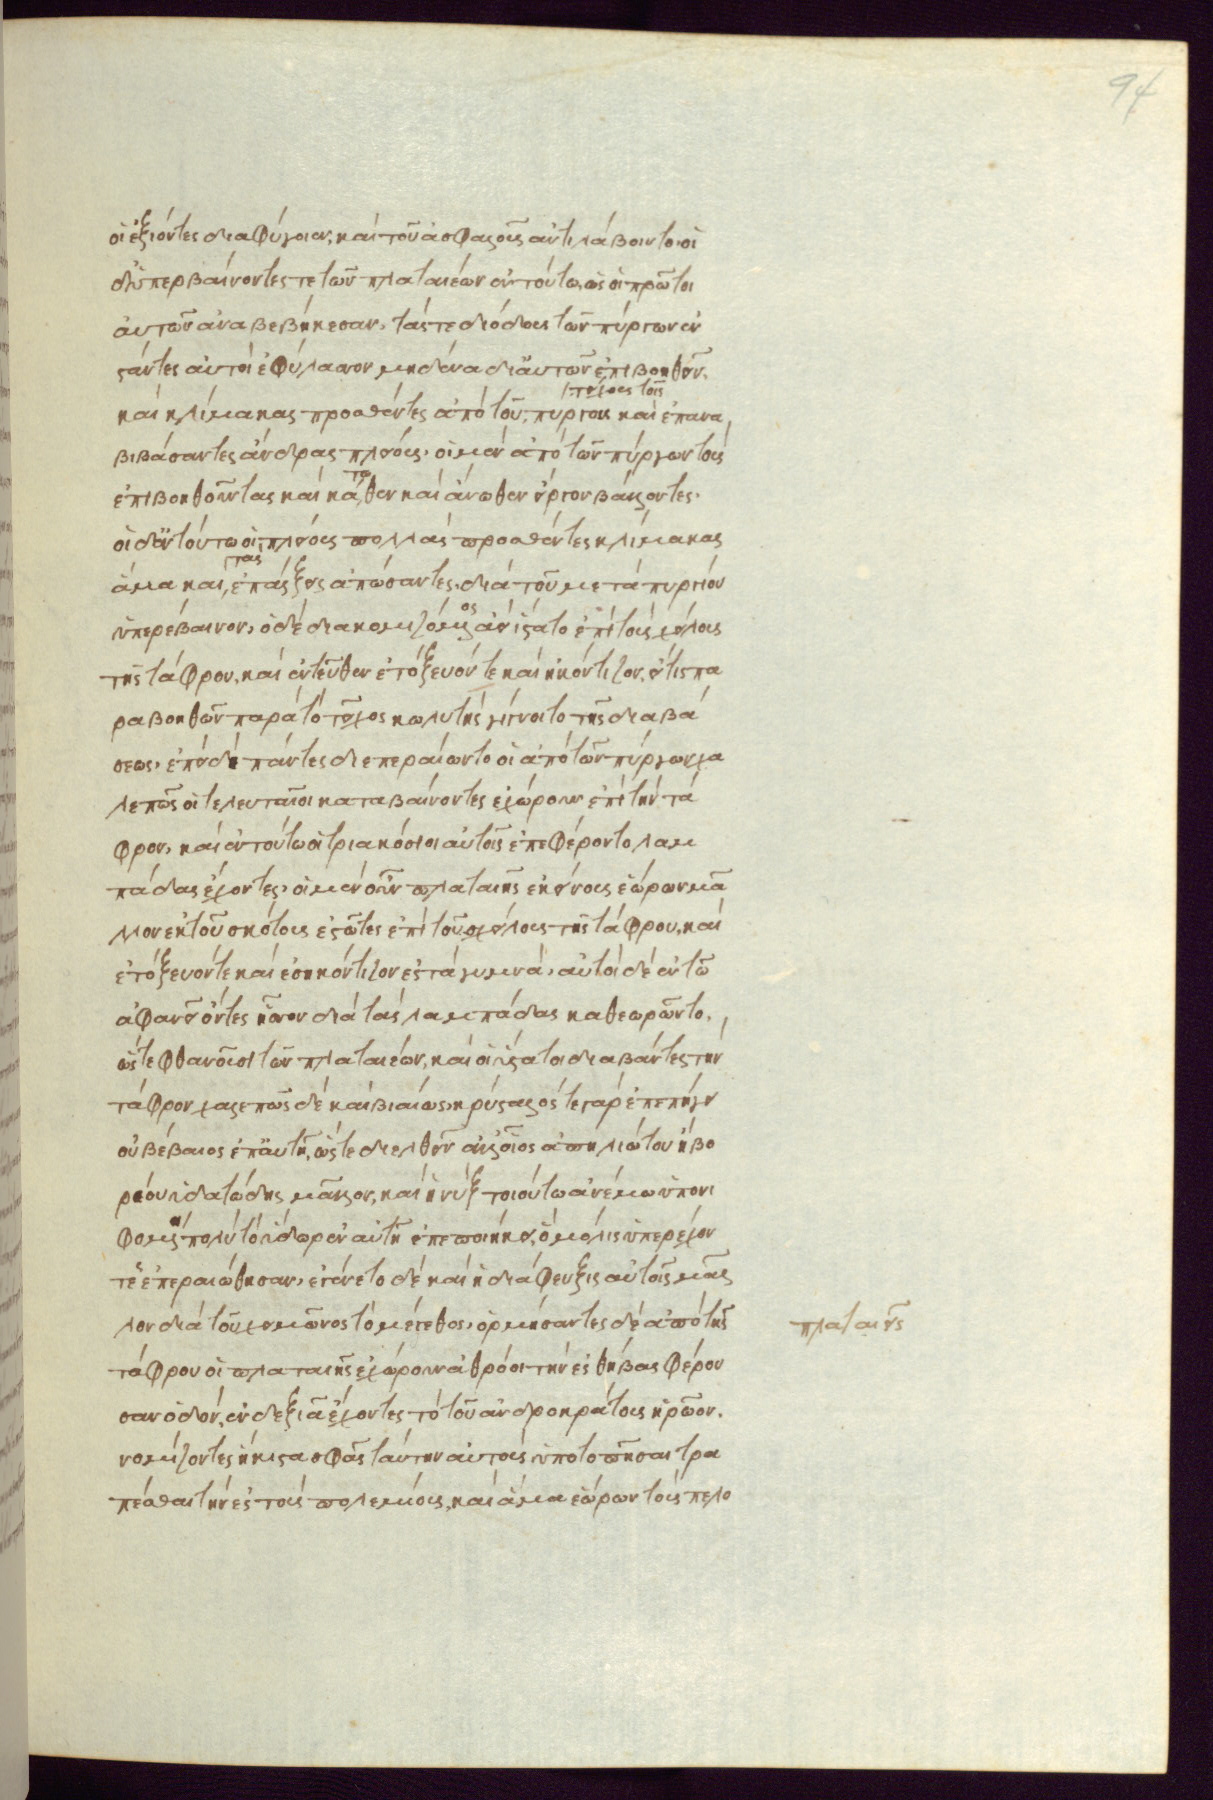 94
οἱ ἐξιόντες διαφύγοιεν, καὶ τοῦ ἀσφαλοῦς ἀντιλάβοιντο. οἱ
δ' ὑπερβαίνοντες τε τῶν πλαταιέων ἐν τούτω, ὡς οἱ πρῶτοι
αὐτῶν ἀναβεβήκεσαν, τάς τε διόδους τῶν πύργων ἐν
στάντες αὐτοὶ ἐφύλασσον μηδένα δι' αὐτῶν ἐπιβοηθεῖν.
τείχους τοῖς
καὶ κλίμακας προσθέντες ἀπὸ τοῦ πύργοις καὶ ἐπανα
βιβάσαντες ἄνδρας πλείους, οἱ μὲν ἀπὸ τῶν πύργων τοὺς
ἐπιβοηθοῦντας καὶ κάτωθεν καὶ ἄνωθεν εἶργον βάλλοντες.
οἱ δ' ἐν τούτω οἱ πλείους πολλὰς προσθέντες κλίμακας
ἅμα καὶ τὰς ἐπάλξεις ἀπώσαντες, διὰ τοῦ μεταπυργίου
ὑπερέβαινον, ὁ δὲ διακομιζόμενος ἀεὶ ἵστατο ἐπὶ τοῦ χείλους
τῆς τάφρου, καὶ ἐντεῦθεν ἐτόξευόν τε καὶ ἠκόντιζον, εἴ τις πα
ραβοηθῶν παρὰ τὸ τεῖχος κωλυτὴς γίγνοιτο τῆς διαβά
σεως, ἐπεὶ δὲ πάντες διεπεραίωντο οἱ ἀπὸ τῶν πύργων χα
λεπῶς οἱ τελευταῖοι καταβαίνοντες ἐχώρουν ἐπὶ τὴν τά
φρον, καὶ ἐν τούτω οἱ τριακόσιοι αὐτοῖς ἐπεφέροντο λαμ
πάδας ἔχοντες, οἱ μὲν οὖν πλαταιῆς ἐκείνους ἑώρων μᾶ
λλον ἐκ τοῦ σκότους ἑστῶτες ἐπὶ τοῦ χείλους τῆς τάφρου, καὶ
ἐτόξευόν τε καὶ ἐσηκόντιζον ἐς τὰ γυμνά, αὐτοὶ δὲ ἐν τῶ
ἀφανεῖ ὄντες ἧσσον διὰ τὰς λαμπάδας καθεωρῶντο,
ὥστε φθάνουσι τῶν πλαταιέων, καὶ οἱ ὕστατοι διαβάντες τὴν
τάφρον χαλεπῶς δὲ καὶ βιαίως, κρύσταλλός τε γὰρ ἐπεπήγει
οὐ βέβαιος ἐπ' αὐτῆ, ὥστε διελθεῖν ἀλλ' οἷος ἀπηλιώτου ἢ βο
ρέου ὑδατώδης μᾶλλον, καὶ ἡ νὺξ τοιούτω ἀνέμω ὑπονι
φομένη πολὺ τὸ ὕδωρ ἐν αὐτῆ ἐπεποιήκει, ὃ μόλις ὑπερέχον
τες ἐπεραιώθησαν, ἐγένετο δὲ καὶ ἡ διάφευξις αὐτοῖς μᾶλ
λον διὰ τοῦ χειμῶνος τὸ μέγεθος, ὁρμήσαντες δὲ ἀπὸ τῆς
πλαταιεῖς
τάφρου οἱ πλαταιῆς ἐχώρουν ἀθρόοι τὴν ἐς θήβας φέρου
σαν ὁδόν, ἐν δεξιᾶ ἔχοντες τὸ τοῦ ἀνδροκράτους ἡρῶον,
νομίζοντες ἥκιστα σφᾶς ταύτην αὐτοὺς ὑποτοπῆσαι τρα
πέσθαι τὴν ἐς τοὺς πολεμίους, καὶ ἅμα ἑώρων τοὺς πελο